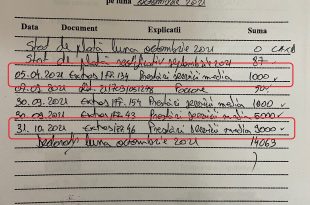 pe luna octombrie 2021
Data Document Explicatii Suma
Stat de plată luna octombrie 2021 0
Stat de plată rectificativ septembrie 2021 87
05.04.2021 Extras 1FF.134 Prestări servicii media 1000
07.05.2021 21703105123
30.09.2021 Extras 1FF.154 Prestări servicii media 1000
30.09.2021 Extras 1FF.43 Prestări servicii media 5000
31.10.2021 Extras 1FF.46 Prestări servicii media 3000
luna octombrie 2021 14063